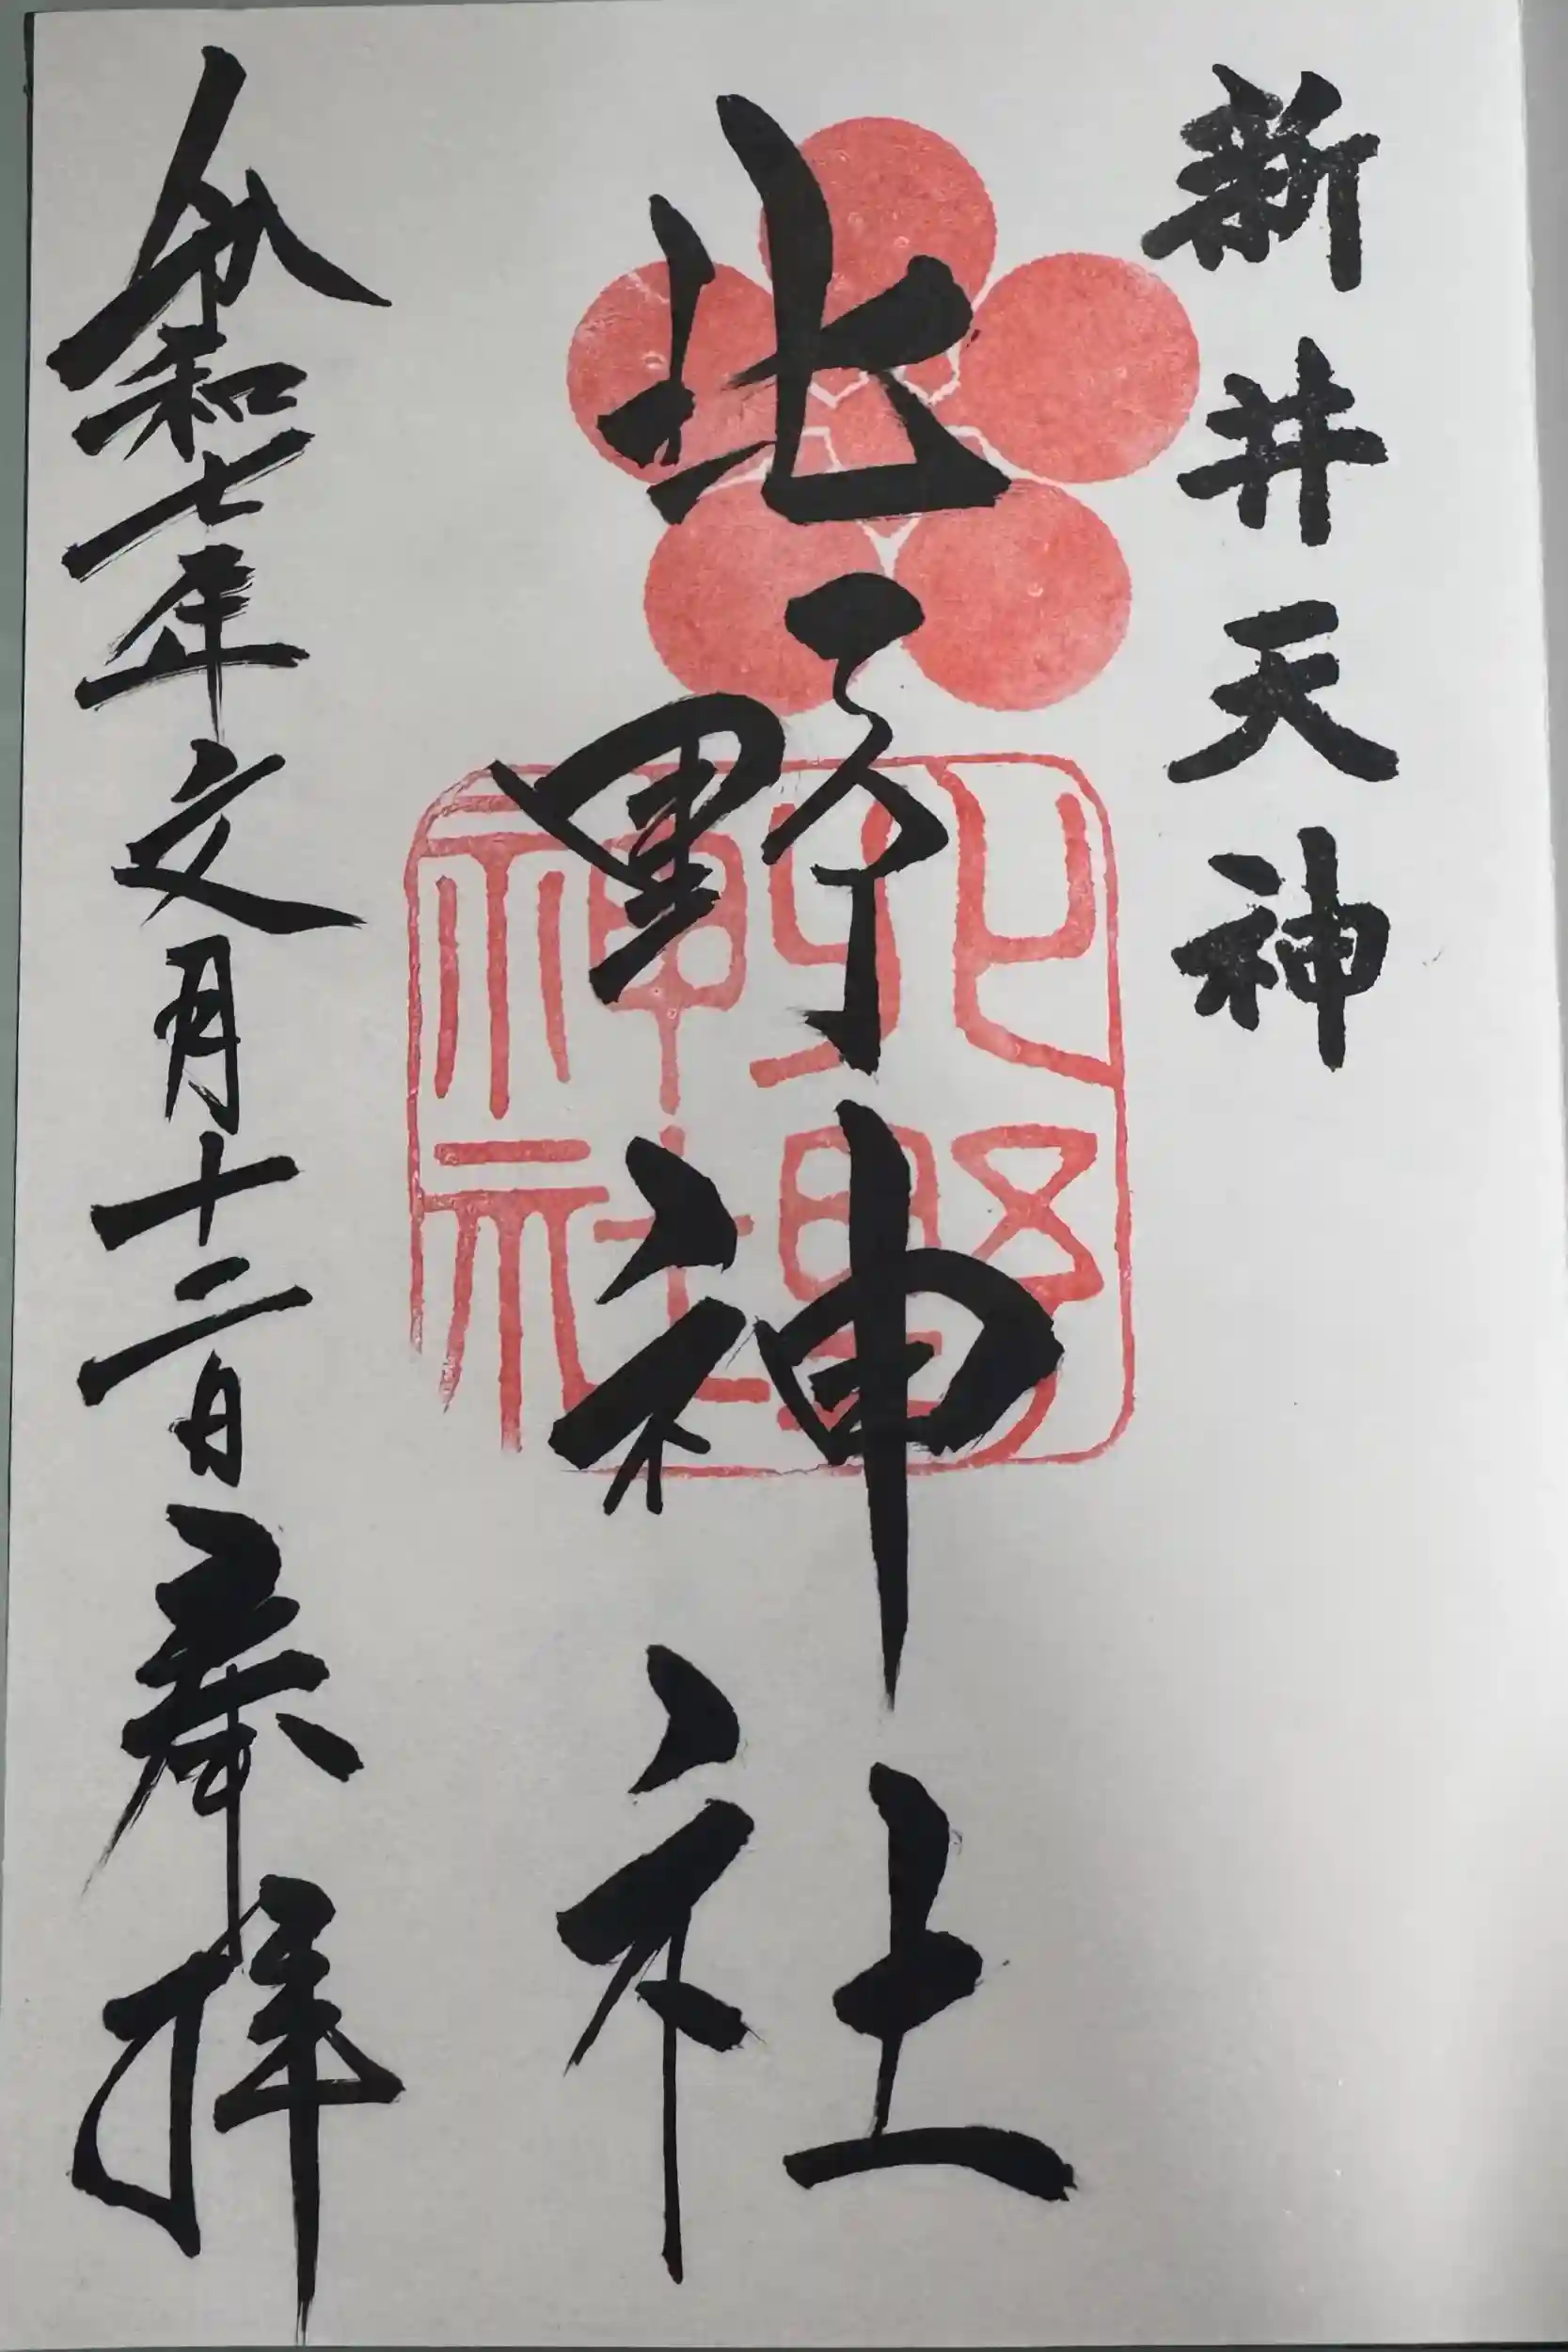 新井天神
北野神社
北野神社
令和七年文月十二日奉拝